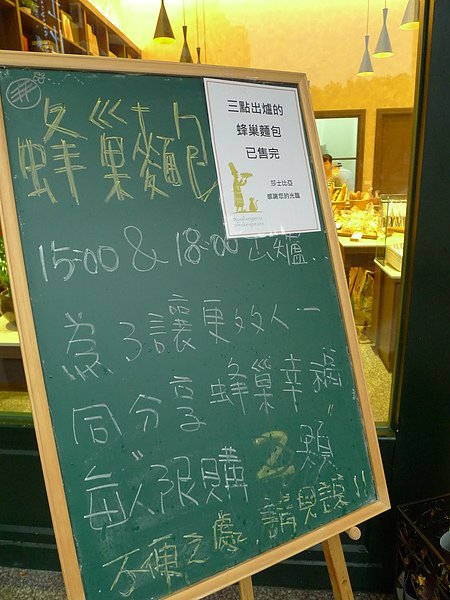 蜂巢麵包
三點出爐的
蜂巢麵包
已售完
莎士比亞
感謝您的光臨
Boulangerie
Shakespeare
15:00 & 18:00 出爐..
為了讓更多人一
同分享蜂巢幸福
每人限購2顆
不便之處,請見諒!!